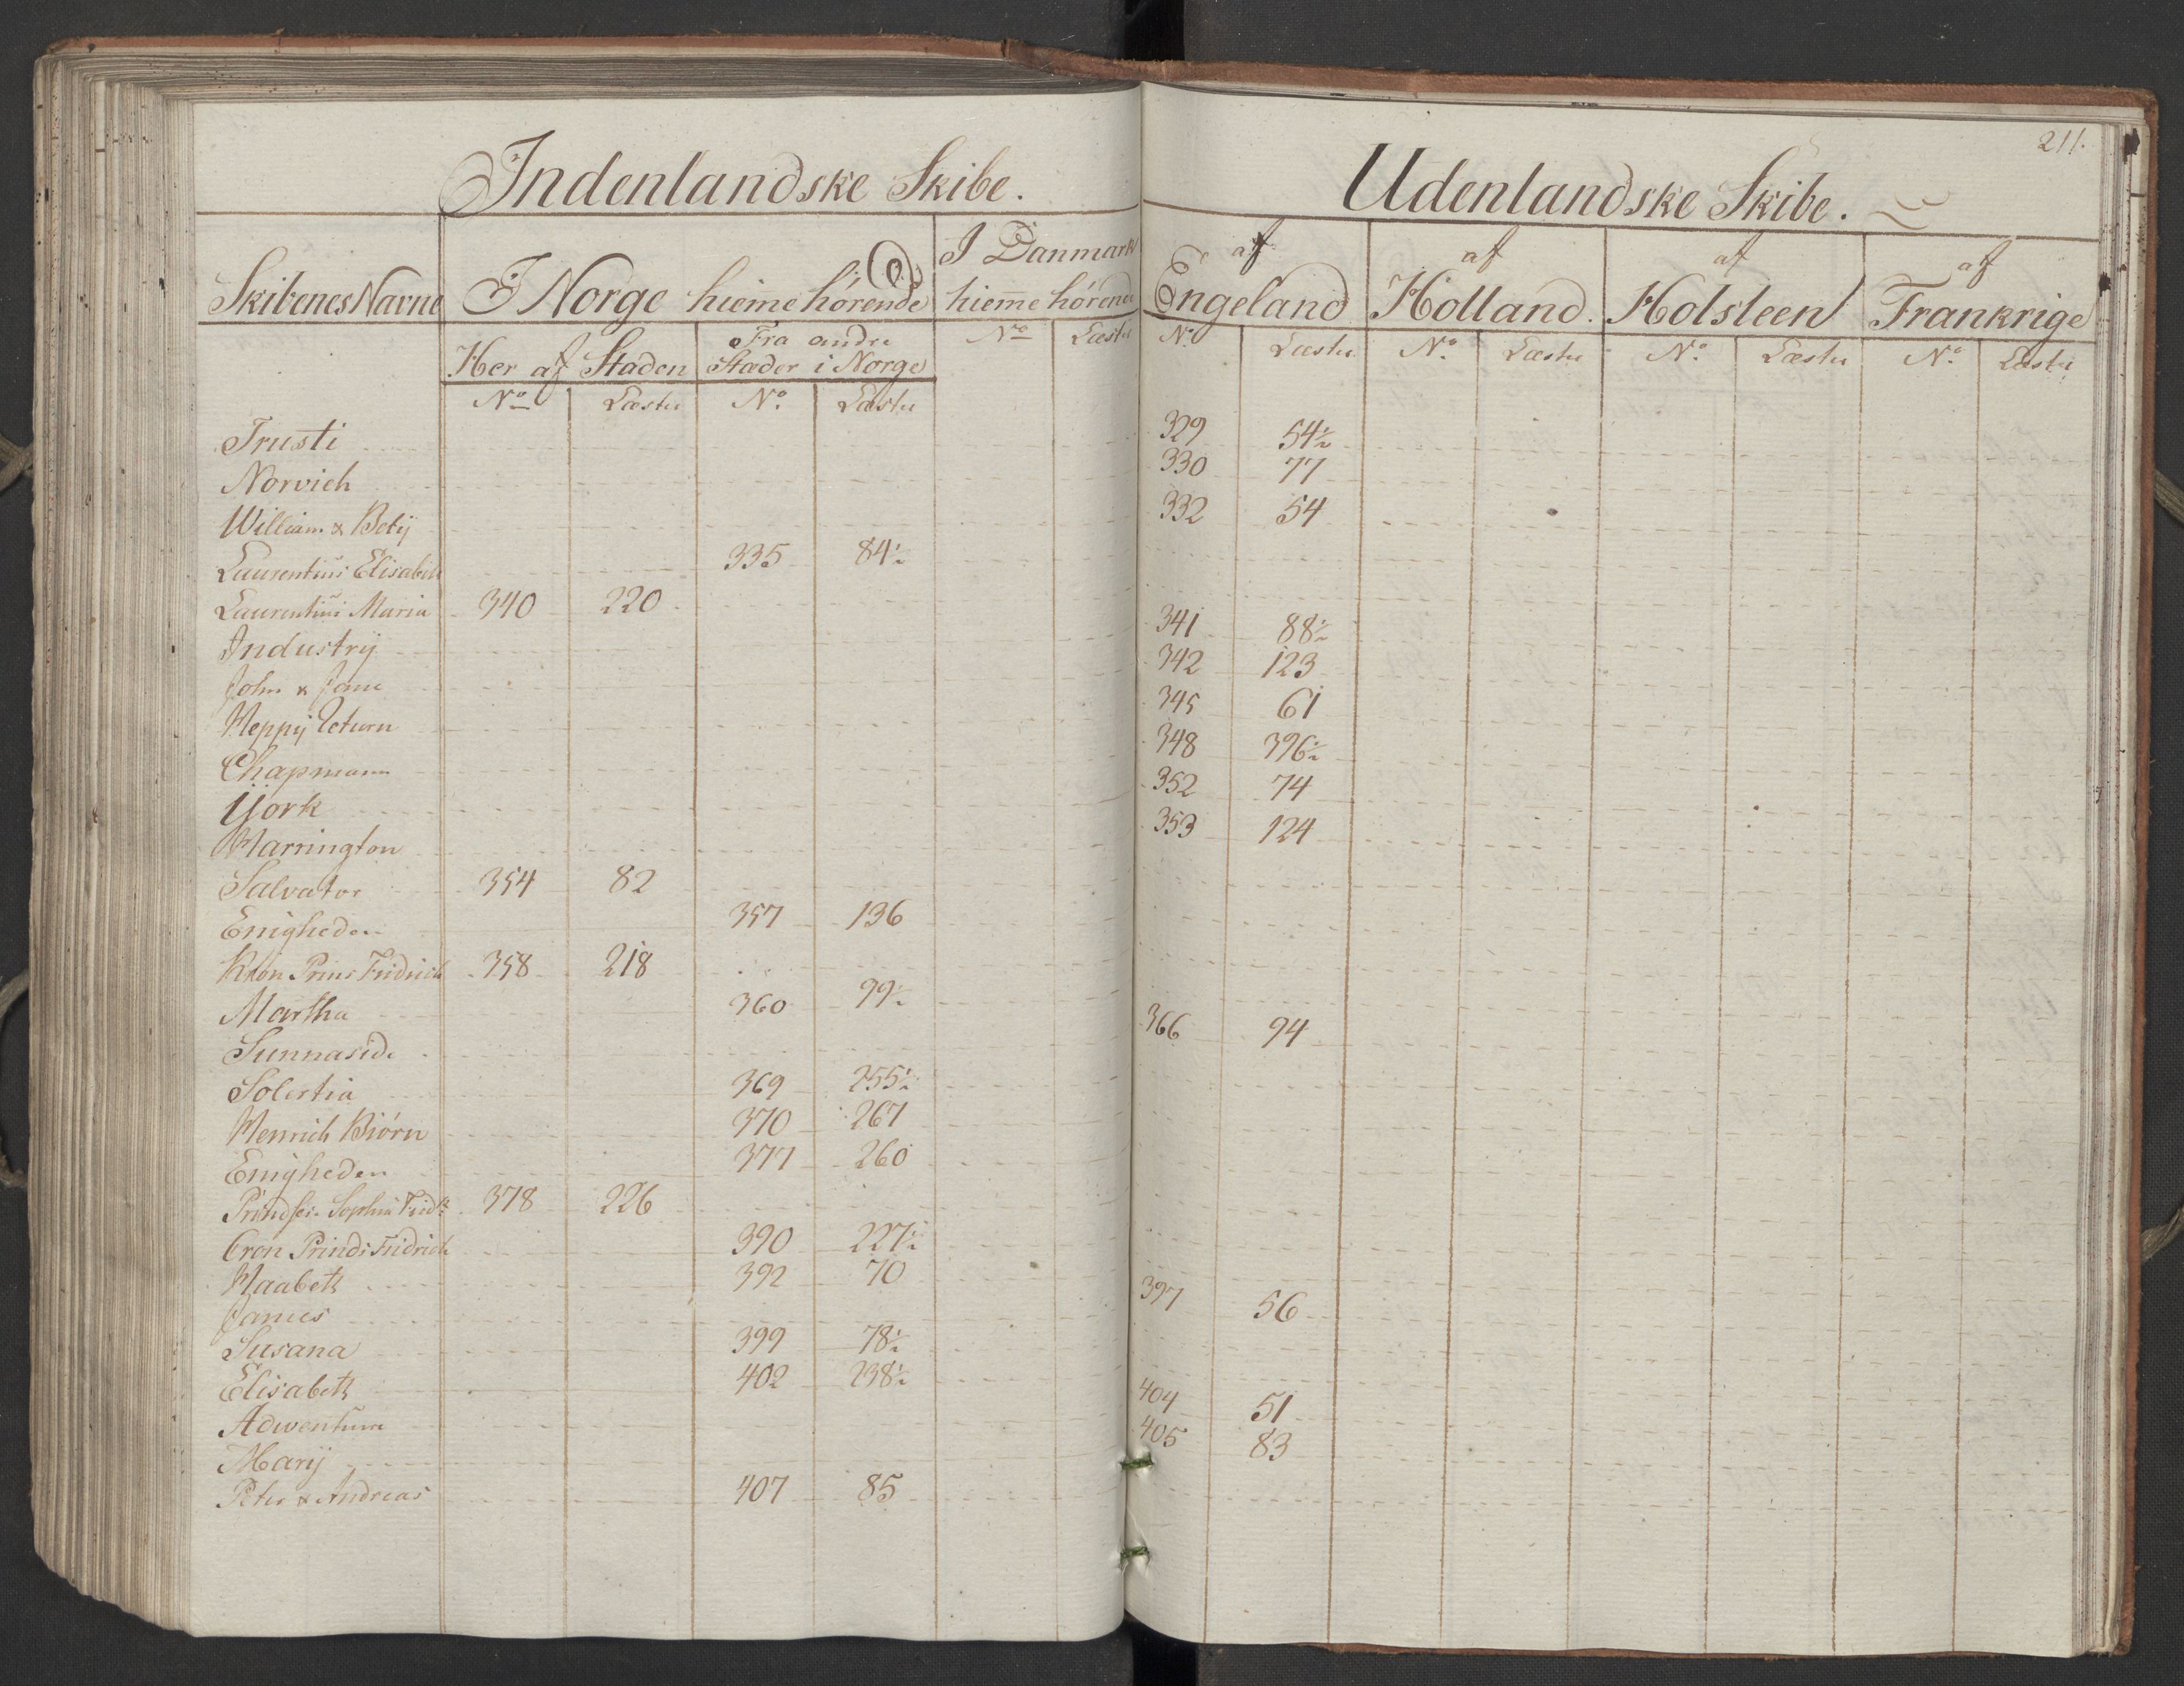 211.
Indenlandske Skibe. Udenlandske Skibe.
Skibenes Navne I Norge hiem̄e hörende I Danmark hiem̄e hörende af Engeland af Holland. af Holsteen af Frankrige
Her af Staden Fra andre Stæder i Norge No Læster No Læster No Læster No Læster No Læster
No Læster No Læster
Trusti 329 54½
Norvich 330 77
William & Betij 332 54
Laurentius Elisabeth 335 84½
Laurentius Maria 340 220
Industrij 341 88½
John & Jane 342 123
Heppij Return 345 61
Chapmann 348 396½
Ÿork 352 74
Harrington 353 124
Salvator 354 82
Enigheden 357 136
Kron Prins Fridrich 358 218
Martha 360 99½
Sunnaside 366 94
Solertia 369 255½
Henrich Biörn 370 267
Enigheden 377 260
Prindses. Sophia Frid: 378 226
Cron Prinds Fridrich 390 227½
Haabeth 392 70
James 397 56
Susana 399 78½
Elisabeth 402 238½
Adwentura 404 51
Marij 405 83
Peter & Andreas 407 85